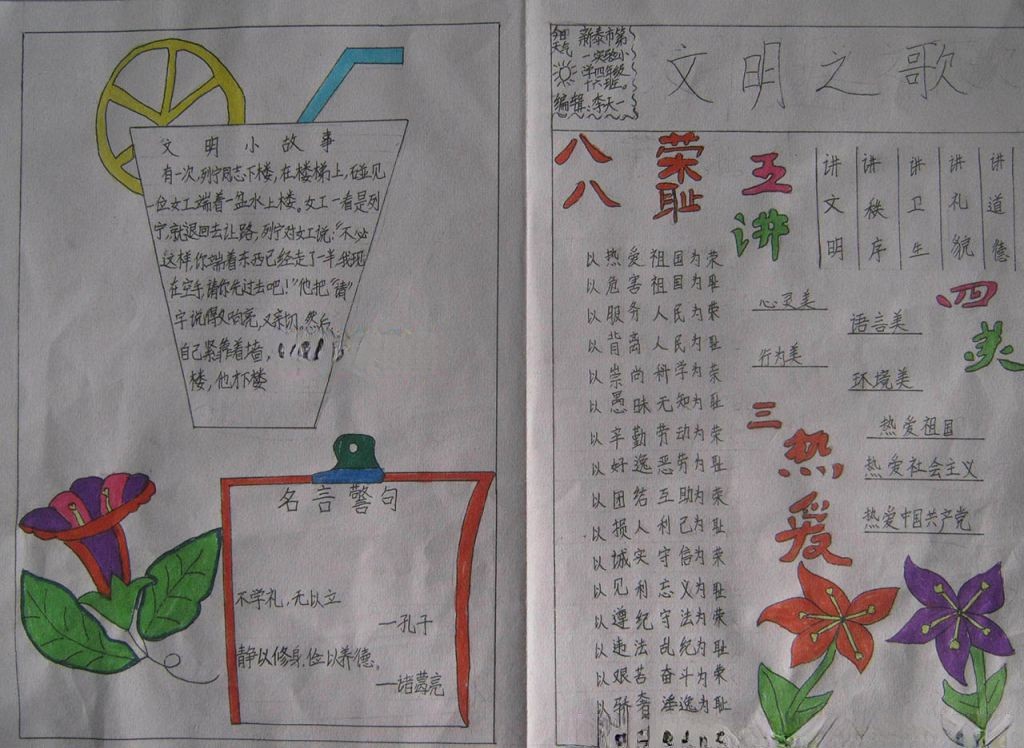 文明小故事
有一次,列宁同志下楼,在楼梯上,碰见
一位女工端着一盆水上楼。女工一看是列
宁,就退回去让路,列宁对女工说:“不必
这样,你端着东西已经走了一半,我现
在空手,请你先过去吧!”他把“请”
字说得又响亮,又亲切。然后,
自己紧靠着墙,
楼,他才下楼
名言警句
不学礼,无以立
—孔子
静以修身,俭以养德。
—诸葛亮
今日
天气
新泰市第
一实验小
学四年级
十六班。
编辑:李大一
文明之歌
八荣
八耻
以热爱祖国为荣
以危害祖国为耻
以服务人民为荣
以背离人民为耻
以崇尚科学为荣
以愚昧无知为耻
以辛勤劳动为荣
以好逸恶劳为耻
以团结互助为荣
以损人利己为耻
以诚实守信为荣
以见利忘义为耻
以遵纪守法为荣
以违法乱纪为耻
以艰苦奋斗为荣
以骄奢淫逸为耻
五讲
讲文明
讲秩序
讲卫生
讲礼貌
讲道德
四美
心灵美
语言美
行为美
环境美
三热爱
热爱祖国
热爱社会主义
热爱中国共产党